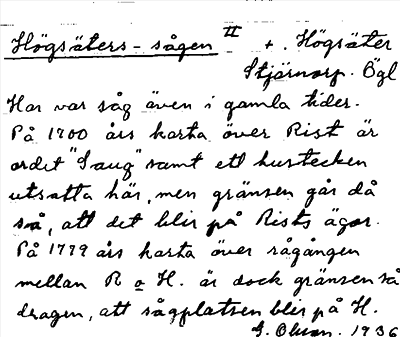 Högsäters-sågen II + . Högsäter
Stjärnorp. Ögl
Här var såg även i gamla tider.
På 1700 års karta över Rist är
ordet "Saug" samt ett hustecken
utsatta här, men gränsen går då
så, att det blir på Rists ägor.
På 1779 års karta över rågången
mellan R o H. är dock gränsen så
dragen, att sågplatsen blir på H.
G. Olson. 1936